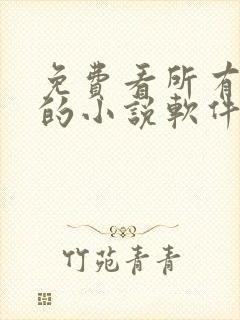 免費看所有
的小說軟件
竹苑青青